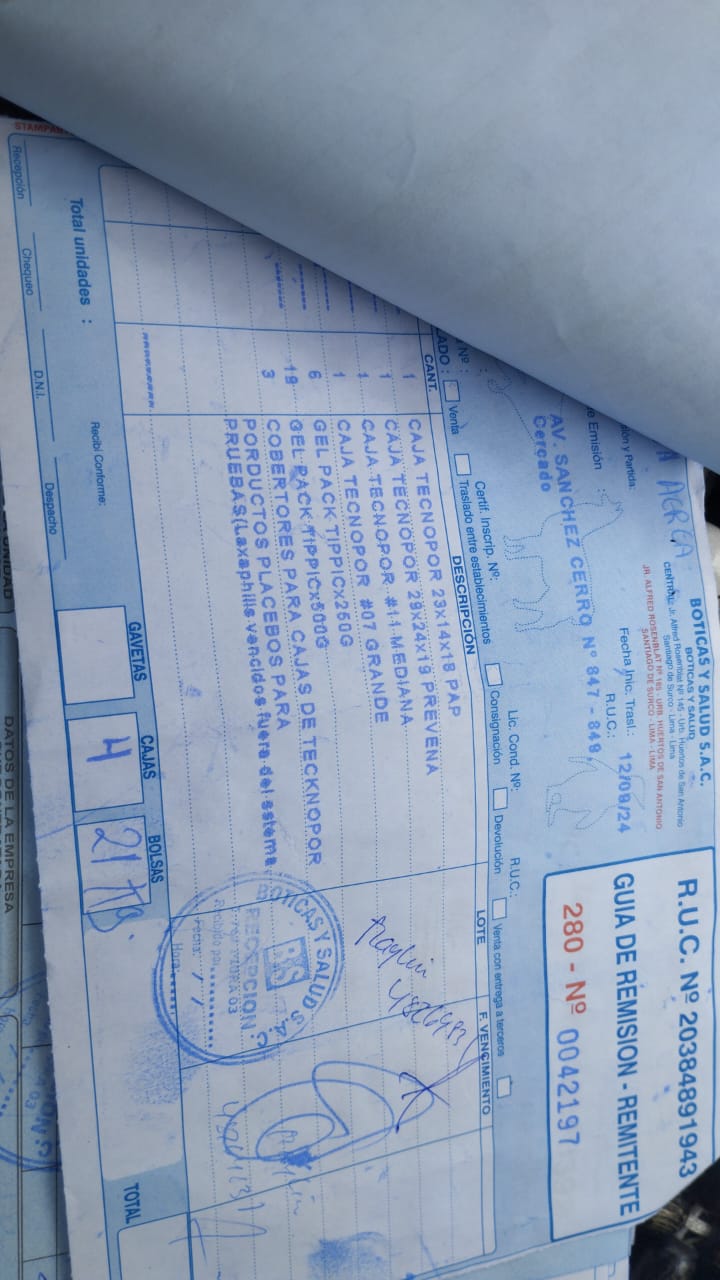 BOTICAS Y SALUD S.A.C.
BOTICAS Y SALUD
CENTRAL: Jr. Alfred Rosenblat Nº 145 - Urb. Huertos de San Antonio
Santiago de Surco - Lima - Lima
JR. ALFRED ROSENBLAT Nº 165 - URB. HUERTOS DE SAN ANTONIO
SANTIAGO DE SURCO - LIMA - LIMA
R.U.C. Nº 20384891943
GUIA DE REMISION - REMITENTE
280 - Nº 0042197
Partida:
Emisión :
Fecha Inic. Trasl.: 12/09/24
R.U.C.:
AV. SANCHEZ CERRO Nº 847 - 849,
Cercado
Nº :
Certif. Inscrip. Nº:
Lic. Cond. Nº:
R.U.C.:
Venta
Traslado entre establecimientos
Consignación
Devolución
Venta con entrega a terceros
CANT. DESCRIPCIÓN LOTE F. VENCIMIENTO
1 CAJA TECNOPOR 23x14x18 PAP
1 CAJA TECNOPOR 29x24x19 PREVENA
1 CAJA TECNOPOR #11 MEDIANA
1 CAJA TECNOPOR #07 GRANDE
6 GEL PACK TIPPICx250G
19 GEL PACK TIPPICx500G
3 COBERTORES PARA CAJAS DE TECKNOPOR
PORDUCTOS PLACEBOS PARA
PRUEBAS(Laxaphills vencidos fuera del sistema
BOTICAS Y SALUD S.A.C.
BS
RECEPCION
Recibido por
Fecha: / /
Hora:
Total unidades :
Recibí Conforme:
GAVETAS
CAJAS 4
BOLSAS
TOTAL
Recepción
Chequeo
D.N.I.
Despacho
DATOS DE LA EMPRESA